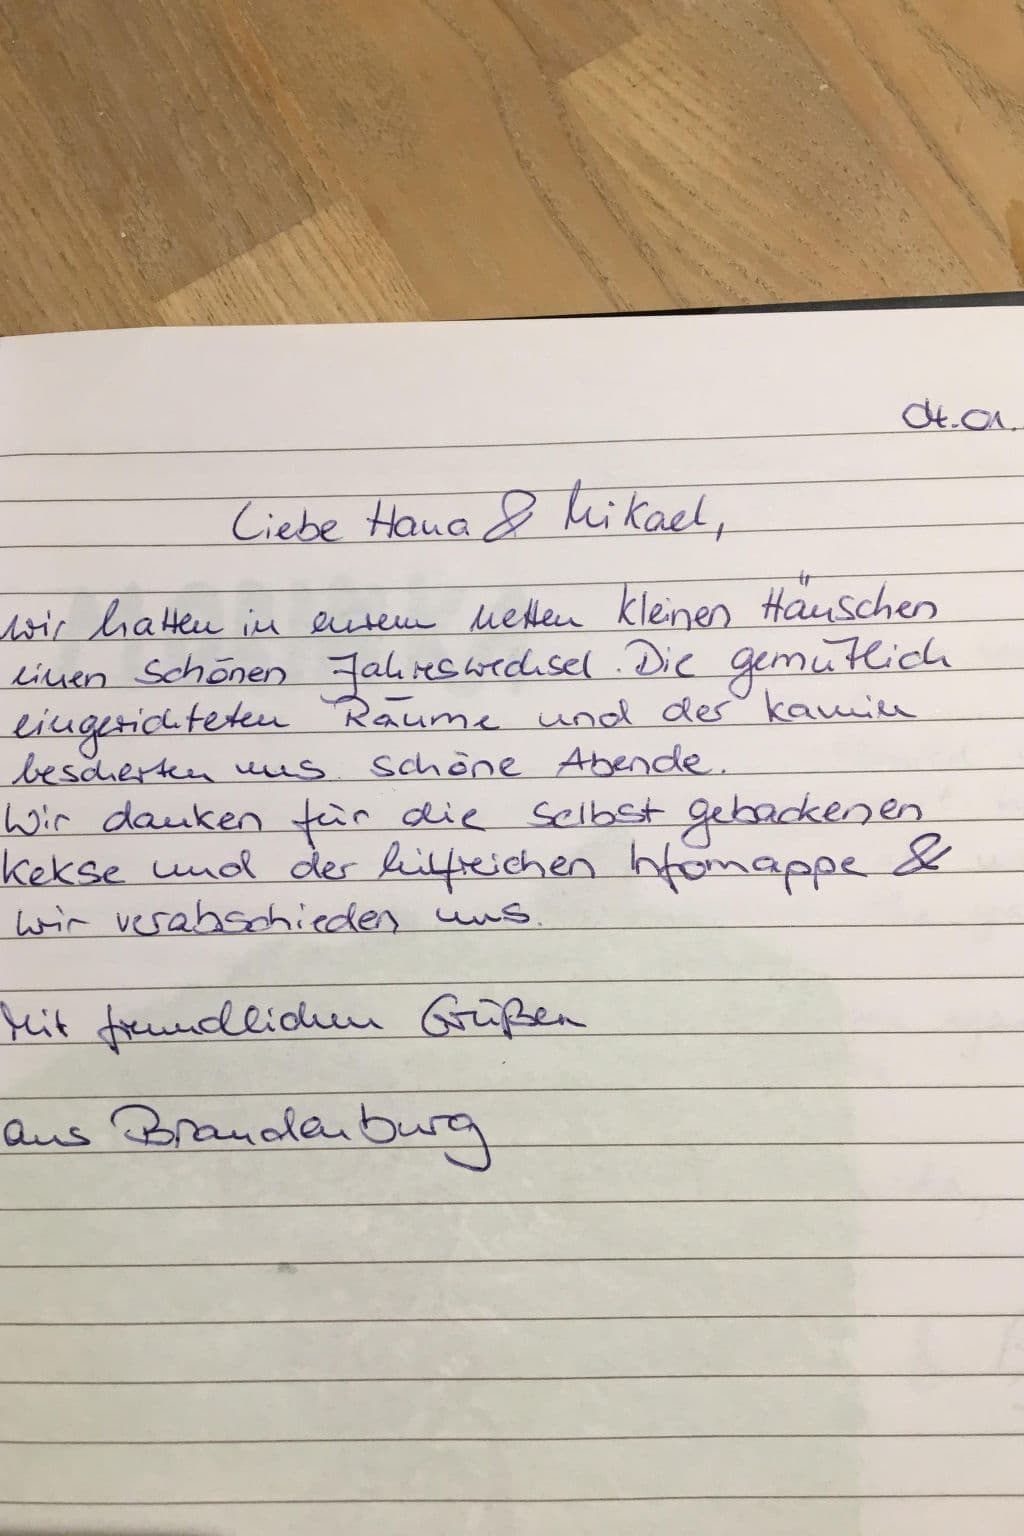 04.01.
Liebe Hana & Mikael,
wir hatten in eurem netten kleinen Häuschen
einen schönen Jahreswechsel. Die gemütlich
eingerichteten Räume und der Kamin
bescherten uns schöne Abende.
Wir danken für die selbst gebackenen
Kekse und der hilfreichen Infomappe &
wir verabschieden uns.
Mit freundlichen Grüßen
aus Brandenburg